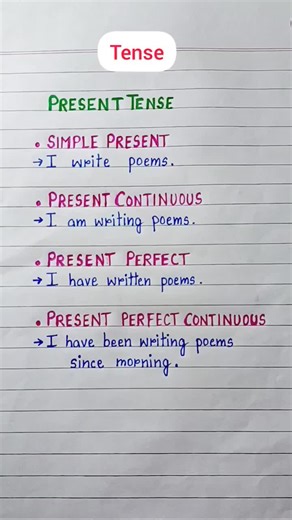 Tense
PRESENT TENSE
• SIMPLE PRESENT
→ I write poems.
• PRESENT CONTINUOUS
→ I am writing poems.
• PRESENT PERFECT
→ I have written poems.
• PRESENT PERFECT CONTINUOUS
→ I have been writing poems
since morning.